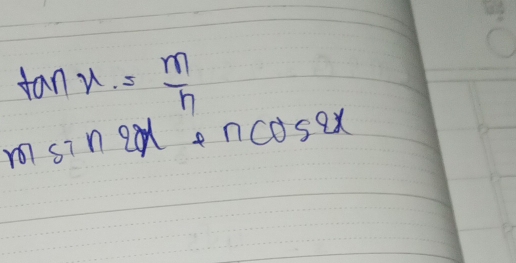 tan x = m/n
m sin 2x + n cos 2x